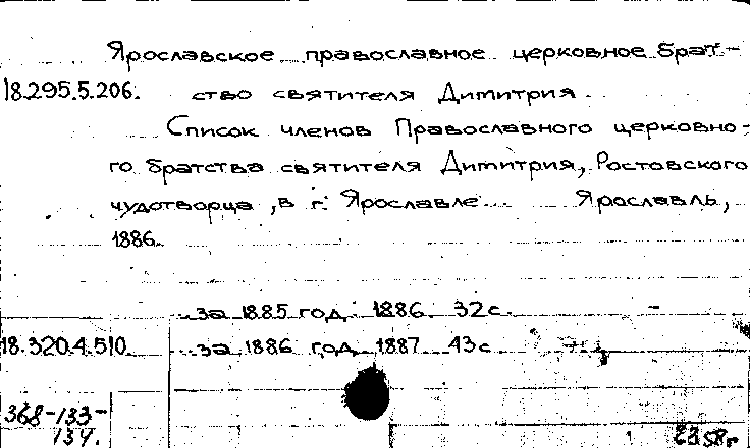 Ярославское православное церковное брат-
18.295.5.206. ство святителя Димитрия.
Список членов Православного церковно-
го братства святителя Димитрия, Ростовского
чудотворца, в г. Ярославле. Ярославль,
1886.
за 1885 год. 1886. 32с. -
18.320.4.510 за 1886 год. 1887. 43с
368-133-
134.